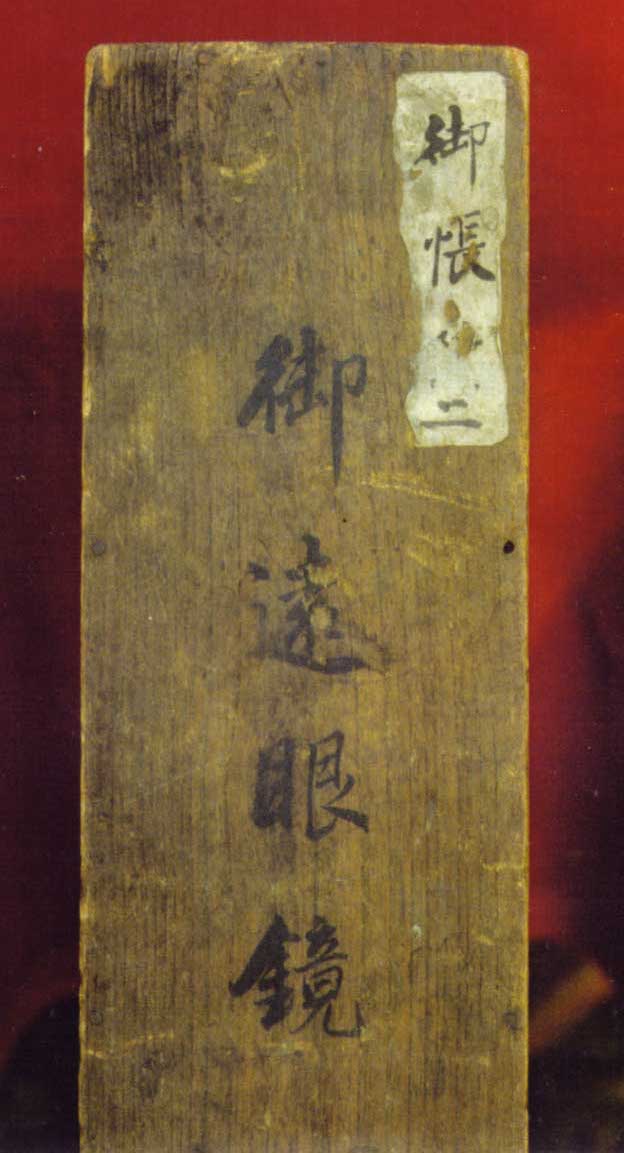 御帳
二
御遠眼鏡